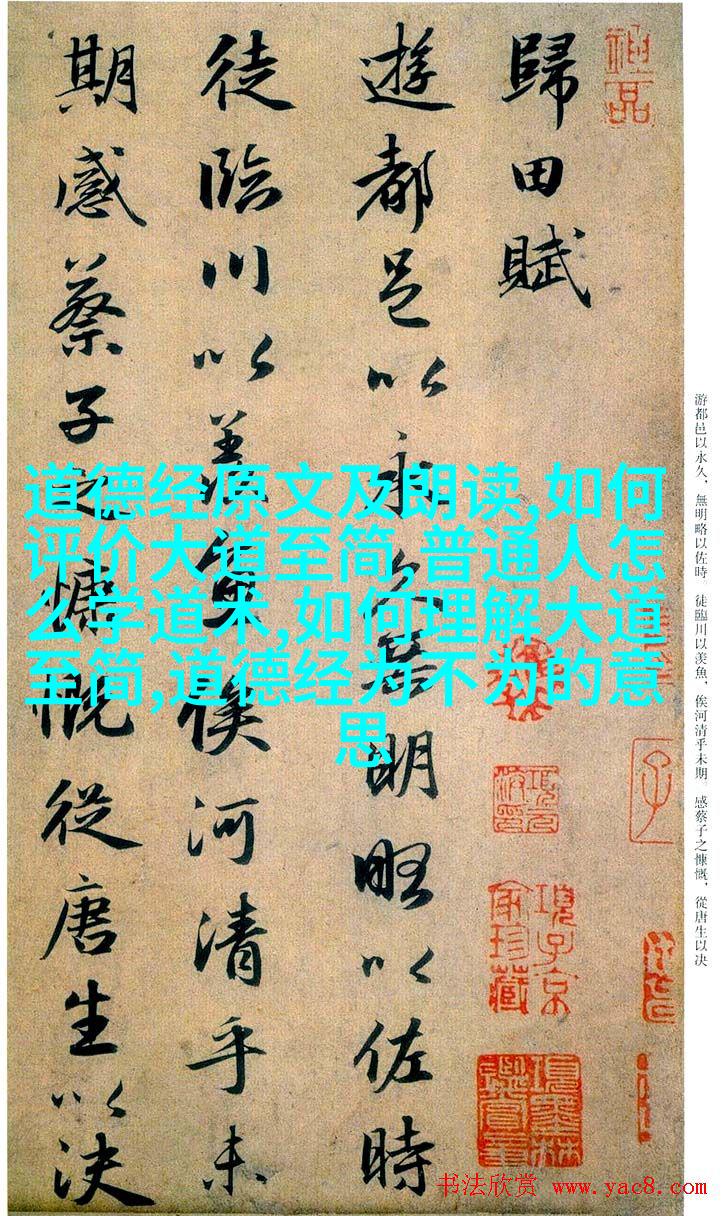 歸田賦
遊都邑以永久無明略以佐時
徒臨川以羨魚俟河清乎未
期感蔡子之慷慨從唐生以決
道德经原文及朗读,如何
评价大道至简,普通人怎
么学道术,如何理解大道
至简,道德经为不为的意
思
游都邑以永久，無明略以佐時。徒臨川以羨魚，俟河清乎未期。感蔡子之慷慨，從唐生以决
神品
項子京
家珍藏
書法欣賞 www.yac8.com